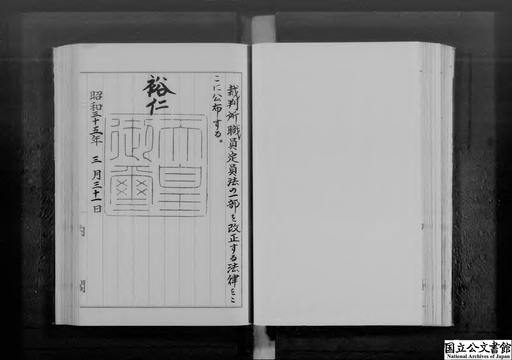 裁判所職員定員法の一部を改正する法律をこ
こに公布する。
裕仁
天皇
御璽
昭和三十五年 三月三十一日
国立公文書館
National Archives of Japan